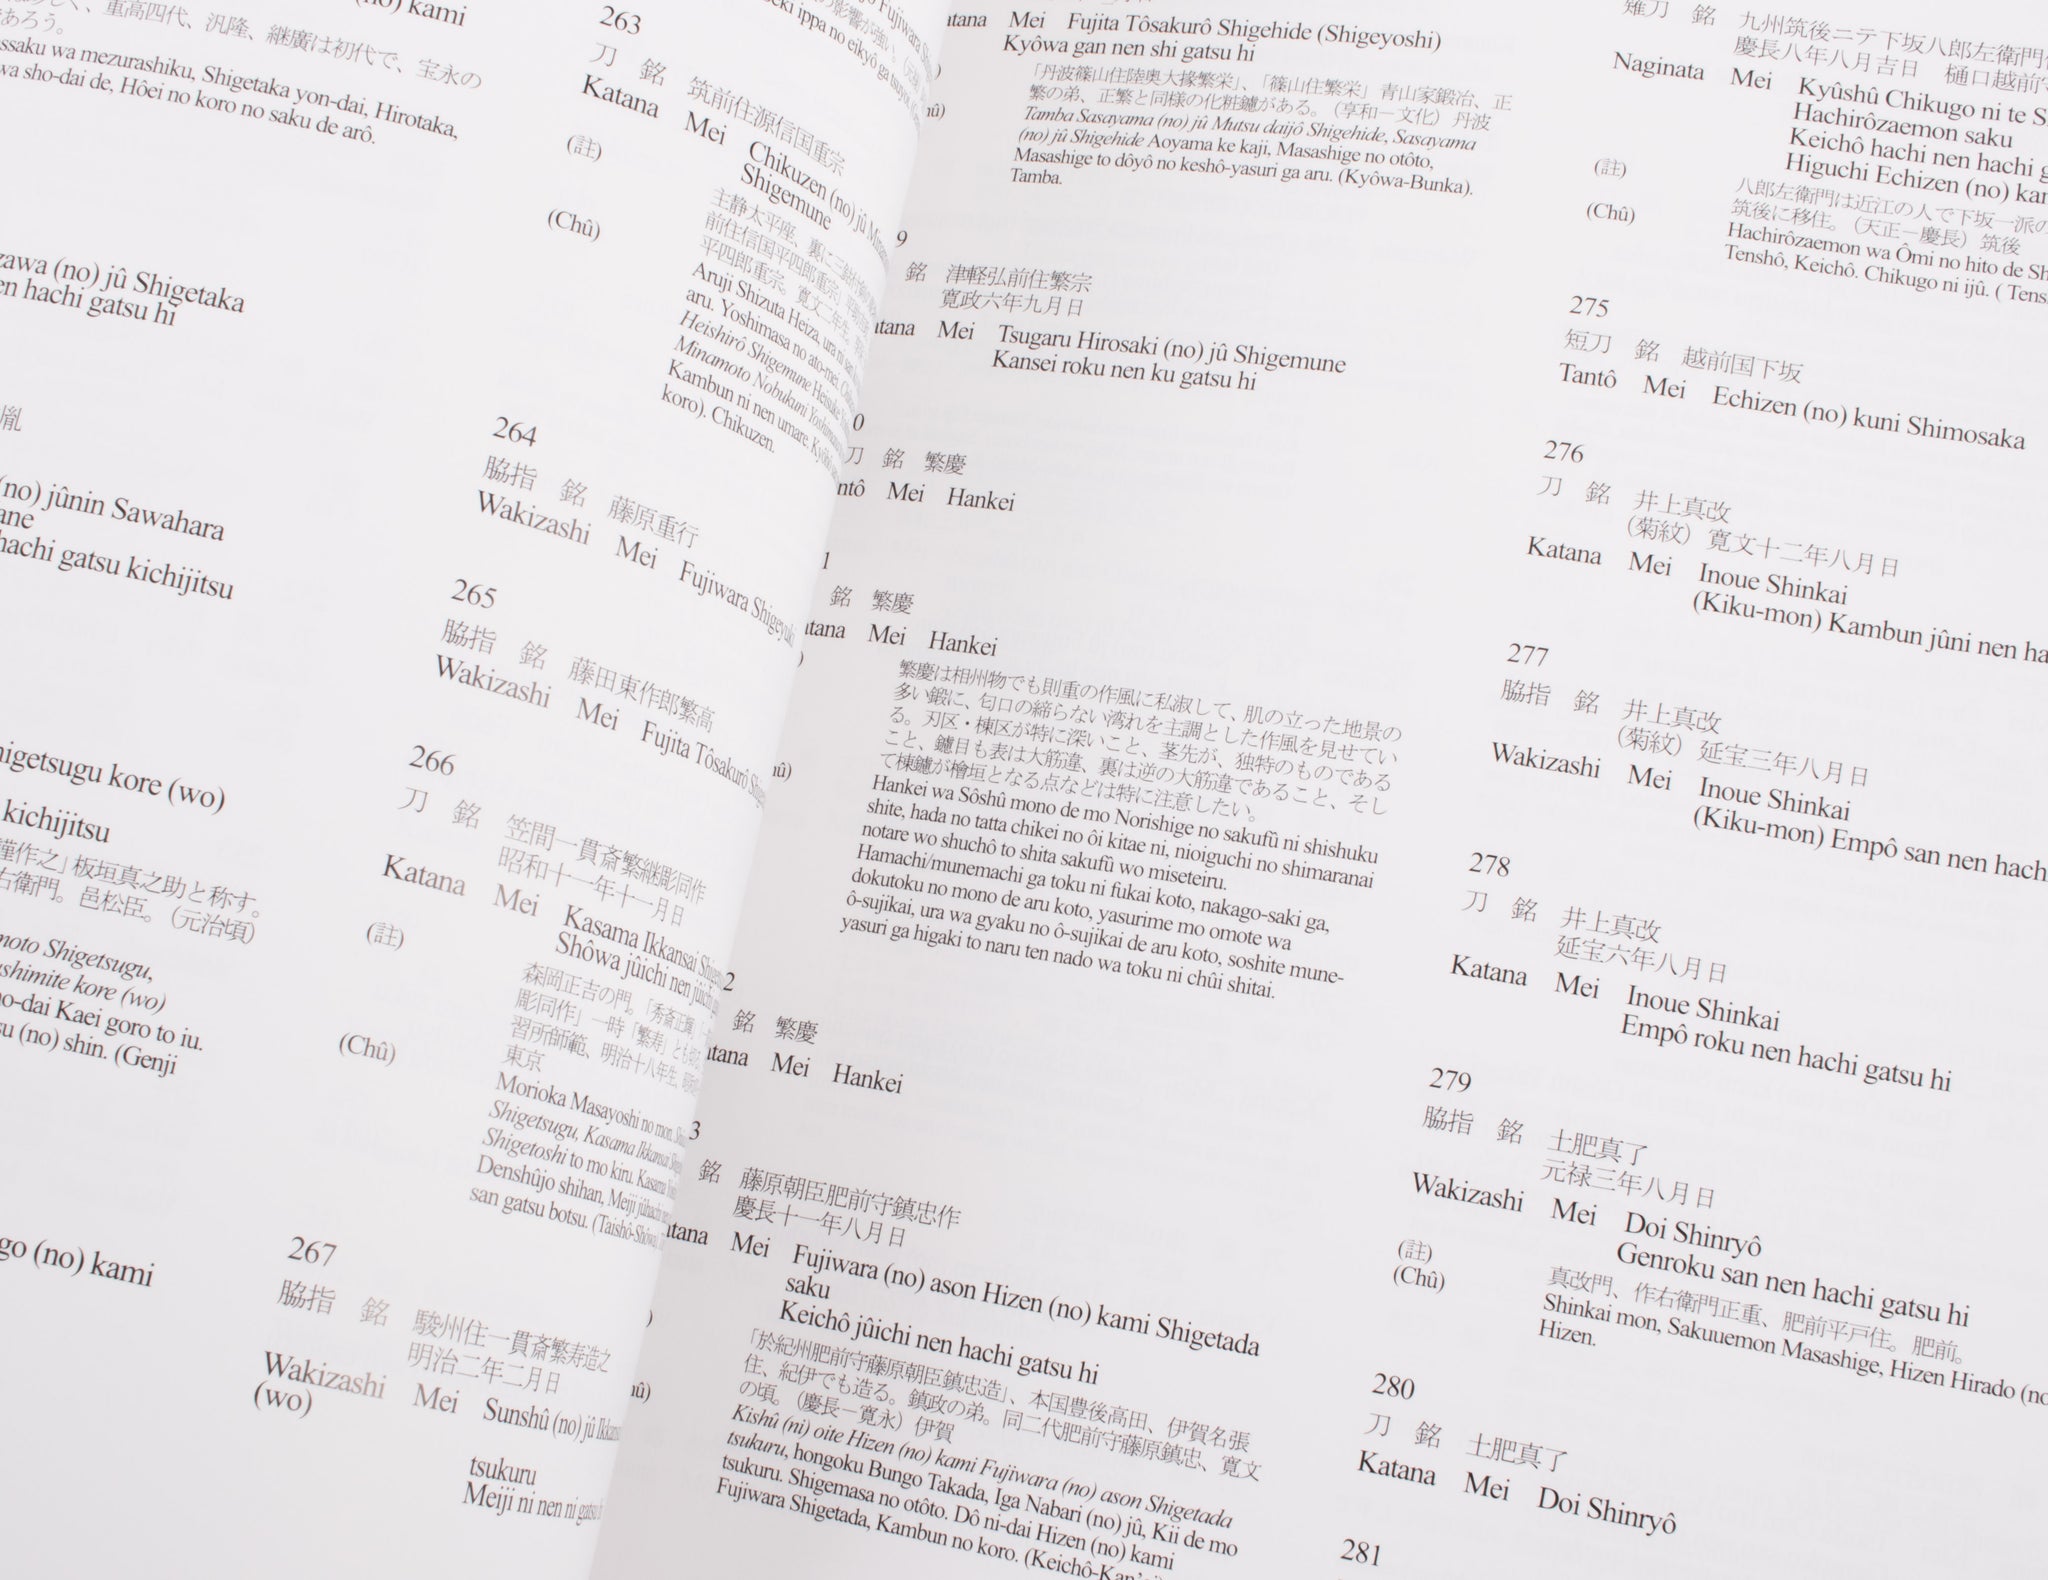 (no) kami
重高四代、汎隆、継廣は初代で、宝永の
であろう。
ssaku wa mezurashiku, Shigetaka yon-dai, Hirotaka,
wa sho-dai de, Hôei no koro no saku de arô.
zawa (no) jû Shigetaka
en hachi gatsu hi
胤
(no) jûnin Sawahara
ane
hachi gatsu kichijitsu
higetsugu kore (wo)
kichijitsu
謹作之」板垣真之助と称す。
右衛門。邑松臣。（元治頃）
moto Shigetsugu,
ashimite kore (wo)
ho-dai Kaei goro to iu.
su (no) shin. (Genji
go (no) kami
263
刀 銘 筑前住源信国重宗
Katana Mei Chikuzen (no) jû
Shigemune
(註)
(Chû)
主静太平座、裏に三
前住信国平四郎重宗」
平四郎重宗。寛文二年生。
Aruji Shizuta Heiza, ura ni
aru. Yoshimasa no ato-mei.
Heishirô Shigemune Heisuke
Minamoto Nobukuni
Kambun ni nen umare.
koro). Chikuzen.
264
脇指 銘 藤原重行
Wakizashi Mei Fujiwara Shigeyuki
265
脇指 銘 藤田東作郎繁高
Wakizashi Mei Fujita Tôsakurô
266
刀 銘 笠間一貫斎繁継彫同作
昭和十一年十一月日
Katana Mei Kasama Ikkansai
Shôwa jûichi nen jûichi
(註)
森岡正吉の門。「秀斎正輝」
彫同作」一時「繁寿」とも
習所師範、明治十八年生、
東京
(Chû)
Morioka Masayoshi no mon.
Shigetsugu, Kasama Ikkansai
Shigetoshi to mo kiru. Kasama
Denshûjo shihan, Meiji jûhachi
san gatsu botsu. (Taishô-Shôwa).
267
脇指 銘 駿州住一貫斎繁寿造之
明治二年二月日
Wakizashi Mei Sunshû (no) jû
(wo)
tsukuru
Meiji ni nen ni gatsu
atana Mei Fujita Tôsakurô Shigehide (Shigeyoshi)
Kyôwa gan nen shi gatsu hi
「丹波篠山住陸奥大掾繁栄」、「篠山住繁栄」青山家鍛冶、正
繁の弟、正繁と同様の化粧鑢がある。（享和－文化）丹波
Tamba Sasayama (no) jû Mutsu daijô Shigehide, Sasayama
(no) jû Shigehide Aoyama ke kaji, Masashige no otôto,
Masashige to dôyô no keshô-yasuri ga aru. (Kyôwa-Bunka).
Tamba.
9
銘 津軽弘前住繁宗
寛政六年九月日
atana Mei Tsugaru Hirosaki (no) jû Shigemune
Kansei roku nen ku gatsu hi
0
刀 銘 繁慶
ntô Mei Hankei
1
銘 繁慶
atana Mei Hankei
繁慶は相州物でも則重の作風に私淑して、肌の立った地景の
多い鍛に、匂口の締らない湾れを主調とした作風を見せてい
る。刃区・棟区が特に深いこと、茎先が、独特のものである
こと、鑢目も表は大筋違、裏は逆の大筋違であること、そし
て棟鑢が檜垣となる点などは特に注意したい。
Hankei wa Sôshû mono de mo Norishige no sakufû ni shishuku
shite, hada no tatta chikei no ôi kitae ni, nioiguchi no shimaranai
notare wo shuchô to shita sakufû wo miseteiru.
Hamachi/munemachi ga toku ni fukai koto, nakago-saki ga,
dokutoku no mono de aru koto, yasurime mo omote wa
ô-sujikai, ura wa gyaku no ô-sujikai de aru koto, soshite mune-
yasuri ga higaki to naru ten nado wa toku ni chûi shitai.
2
銘 繁慶
atana Mei Hankei
3
銘 藤原朝臣肥前守鎮忠作
慶長十一年八月日
atana Mei Fujiwara (no) ason Hizen (no) kami Shigetada
saku
Keichô jûichi nen hachi gatsu hi
「於紀州肥前守藤原朝臣鎮忠造」、本国豊後高田、伊賀名張
住、紀伊でも造る。鎮政の弟。同二代肥前守藤原鎮忠、寛文
の頃。（慶長－寛永）伊賀
Kishû (ni) oite Hizen (no) kami Fujiwara (no) ason Shigetada
tsukuru, hongoku Bungo Takada, Iga Nabari (no) jû, Kii de mo
tsukuru. Shigemasa no otôto. Dô ni-dai Hizen (no) kami
Fujiwara Shigetada, Kambun no koro. (Keichô-Kan'
薙刀 銘 九州筑後ニテ下坂八郎左衛門
慶長八年八月吉日 樋口越前守
Naginata Mei Kyûshû Chikugo ni te S
Hachirôzaemon saku
Keichô hachi nen hachi g
Higuchi Echizen (no) kam
(註)
八郎左衛門は近江の人で下坂一派の
筑後に移住。（天正－慶長）筑後
(Chû)
Hachirôzaemon wa Ômi no hito de Sh
Tenshô, Keichô. Chikugo ni ijû. ( Tens
275
短刀 銘 越前国下坂
Tantô Mei Echizen (no) kuni Shimosaka
276
刀 銘 井上真改
（菊紋）寛文十二年八月日
Katana Mei Inoue Shinkai
(Kiku-mon) Kambun jûni nen ha
277
脇指 銘 井上真改
（菊紋）延宝三年八月日
Wakizashi Mei Inoue Shinkai
(Kiku-mon) Empô san nen hach
278
刀 銘 井上真改
延宝六年八月日
Katana Mei Inoue Shinkai
Empô roku nen hachi gatsu hi
279
脇指 銘 土肥真了
元禄三年八月日
Wakizashi Mei Doi Shinryô
Genroku san nen hachi gatsu hi
(註)
真改門、作右衛門正重、肥前平戸住。肥前。
(Chû)
Shinkai mon, Sakuuemon Masashige, Hizen Hirado (no
Hizen.
280
刀 銘 土肥真了
Katana Mei Doi Shinryô
281